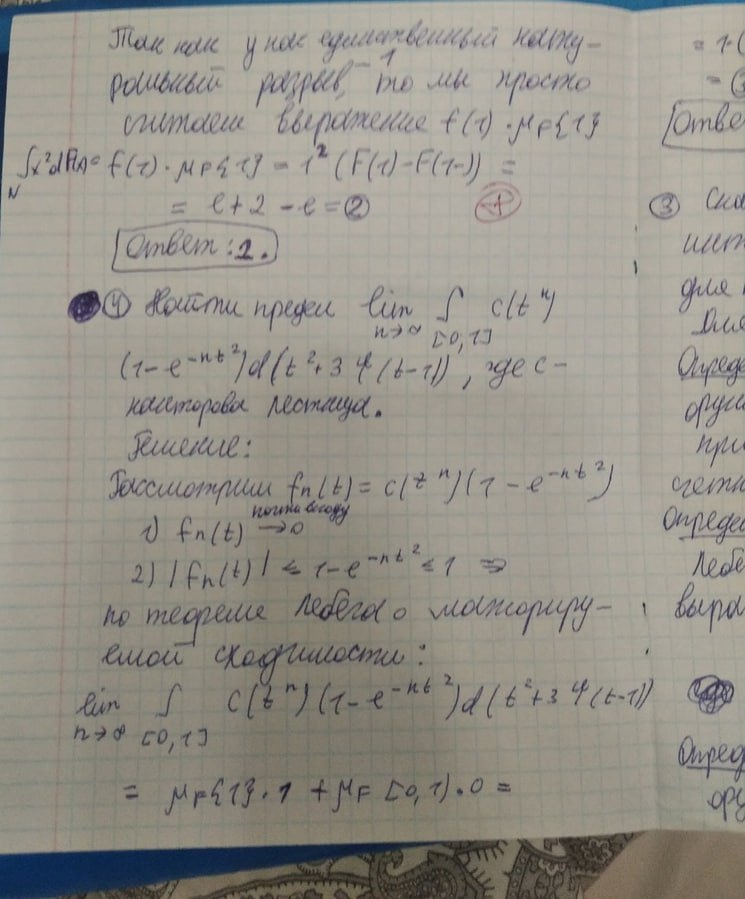 Так как у нас единственный нату-
ральный разрыв – 1, то мы просто
считаем выражение f(1)·μF{1}
∫x²dF(x)= f(1)·μF{1} = 1²(F(1)-F(1-)) =
N
= e+2-e=2
Ответ: 2.
④ Найти предел lim ∫ c(tⁿ)
n→∞ [0,1]
(1-e^{-nt²})d(t²+3φ(t-1)), где c-
канторова лестница.
Решение:
Рассмотрим fn(t)= c(tⁿ)(1-e^{-nt²})
почти всюду
1) fn(t) → 0
2) |fn(t)| ≤ 1-e^{-nt²} ≤ 1 ⇒
по теореме Лебега о мажориру-
емой сходимости:
lim ∫ c(tⁿ)(1-e^{-nt²})d(t²+3φ(t-1))
n→∞ [0,1]
= μF{1}·1 + μF[0,1)·0 =
= 1·(
= (3
Ответ
③
инт
для
Для
Опреде
при
счетн
Определ
Лебе
выра
Опред